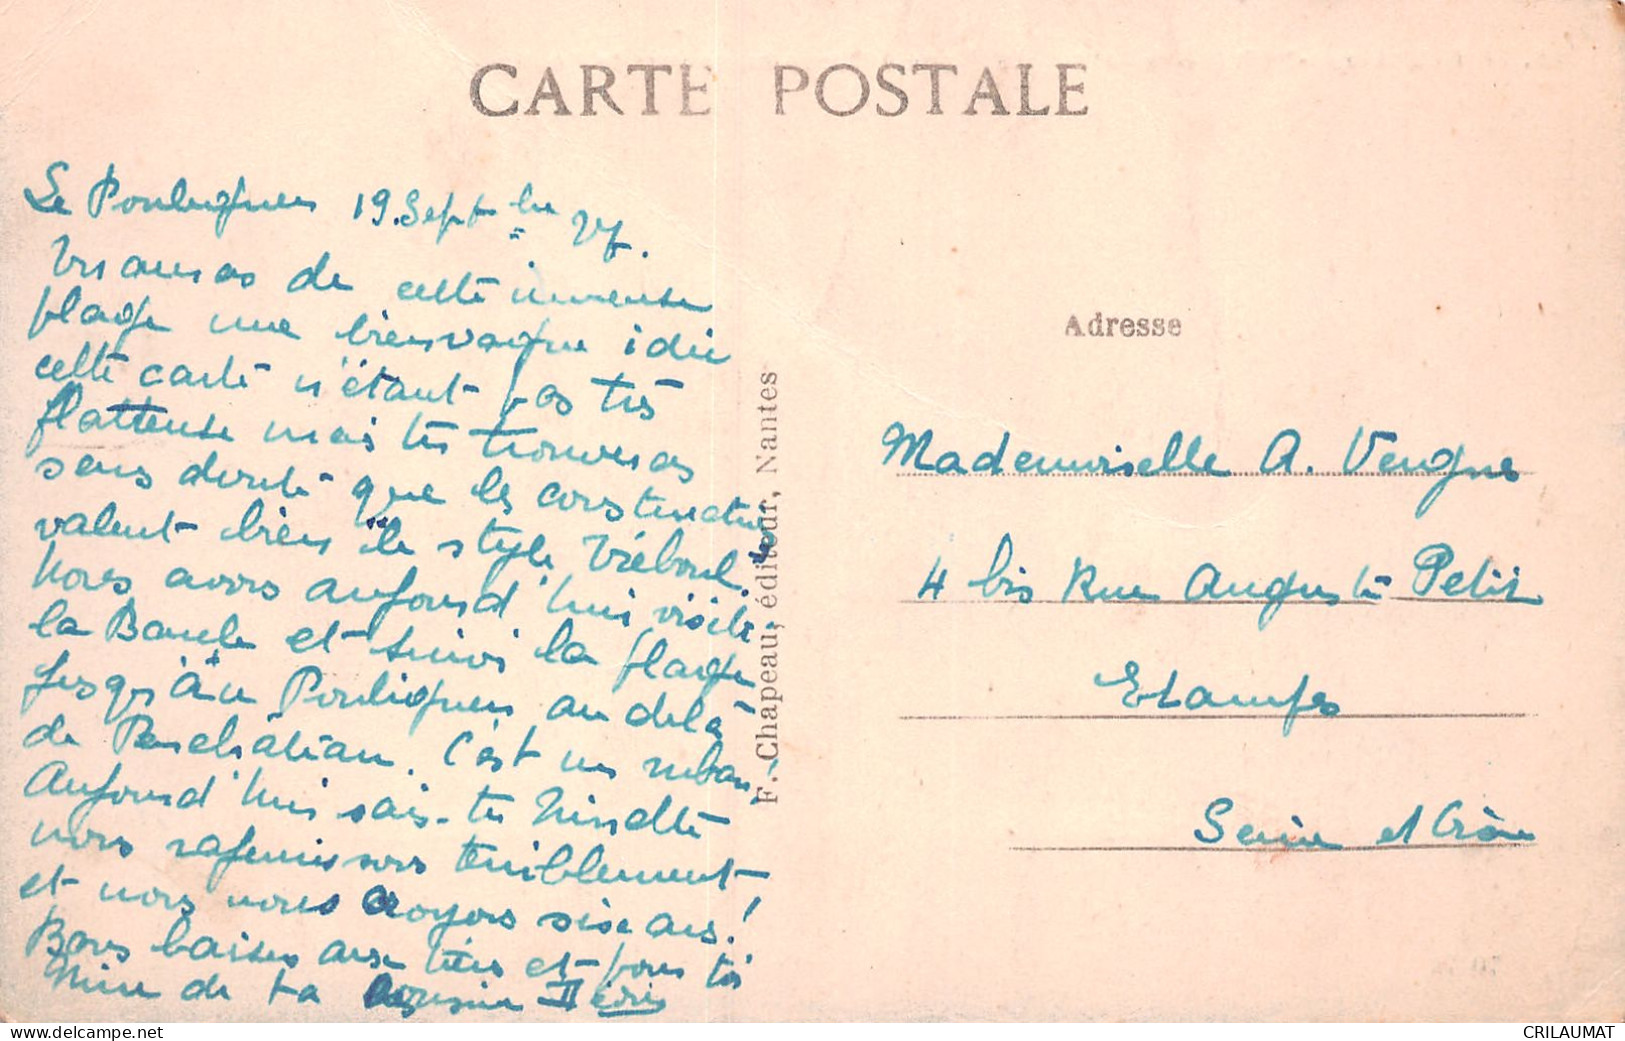 CARTE POSTALE
Le Pouliguen 19 Septbre 27.
de cette immense
plage une bien vague idée
cette carte n'étant pas très
flatteuse mais tu trouveras
sans doute que les constructions
valent bien le style
Nous avons aujourd'hui visité
la Baule et suivi la plage
jusqu'au Pouliguen au delà
de Penchâteau. C'est un ruban!
Aujourd'hui sais-tu Ninette
nous rajeunissons terriblement
et nous nous croyons seize ans!
Bons baisers aux tiens et pour toi
Nine de ta cousine
F. Chapeau, éditeur, Nantes
Adresse
Mademoiselle A. Vergne
4 bis Rue Auguste Petit
Etampes
Seine et Oise
CRILAUMAT